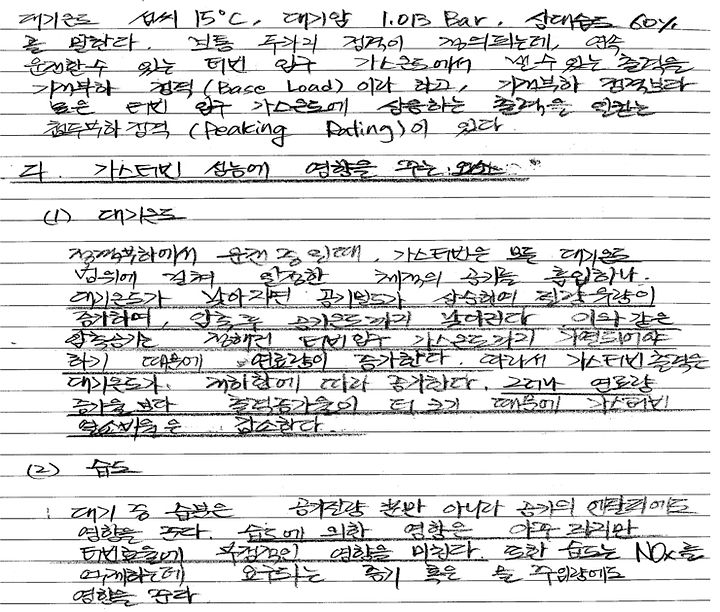 대기온도 섭씨 15°C, 대기압 1.013 Bar, 상대습도 60%
를 말한다. 보통 두가지 정격이 정의되는데, 연속
운전할 수 있는 터빈 입구 가스온도에서 낼 수 있는 출력을
기저부하 정격 (Base Load) 이라 하고, 기저부하 정격보다
높은 터빈 입구 가스온도에 상응하는 출력을 일컫는
첨두부하 정격 (Peaking Rating)이 있다.
다. 가스터빈 성능에 영향을 주는
(1) 대기온도
정격부하에서 운전 중일때, 가스터빈은 모든 대기온도
범위에 걸쳐 일정한 체적의 공기를 흡입하나.
대기온도가 낮아지면 공기밀도가 상승하여 질량유량이
증가하며, 압축후 공기온도까지 낮아진다 이와 같은
압축공기는 정해진 터빈입구 가스온도까지 가열되어야
하기 때문에 연료량이 증가한다. 따라서 가스터빈 출력은
대기온도가 저하함에 따라 증가한다. 그러나 연료량
증가율 보다 출력증가율이 더 크기 때문에 가스터빈
열소비율은 감소한다.
(2) 습도
대기 중 습분은 공기질량 뿐만 아니라 공기의 엔탈피에도
영향을 준다. 습도에 의한 영향은 아주 작지만
터빈효율에 부정적인 영향을 미친다. 또한 습도는 NOx를
억제하는데 요구되는 증기 혹은 물 주입량에도
영향을 준다